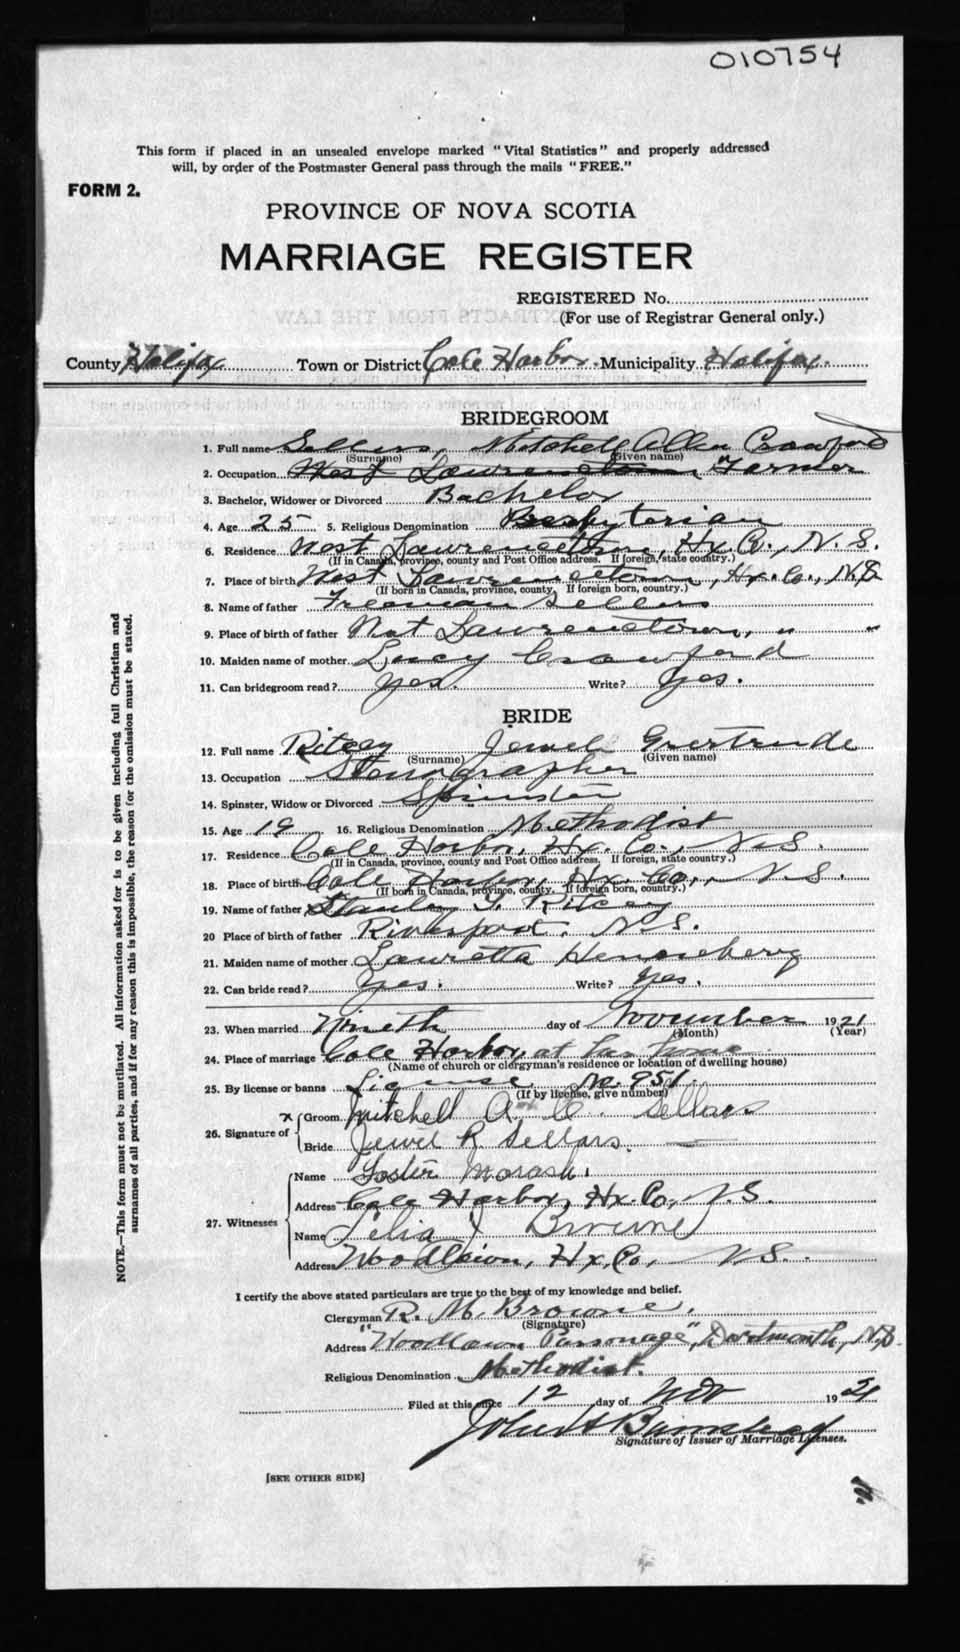 010754
This form if placed in an unsealed envelope marked "Vital Statistics" and properly addressed
will, by order of the Postmaster General pass through the mails "FREE."
FORM 2.
PROVINCE OF NOVA SCOTIA
MARRIAGE REGISTER
REGISTERED No.
(For use of Registrar General only.)
County Halifax Town or District Cole Harbor Municipality Halifax
BRIDEGROOM
1. Full name Sellers, Mitchell Allen Crawford
(Surname) (Given name)
2. Occupation West Lawrencetown, Farmer
3. Bachelor, Widower or Divorced Bachelor
4. Age 25 5. Religious Denomination Presbyterian
6. Residence West Lawrencetown, Hx. Co., N. S.
(If in Canada, province, county and Post Office address. If foreign, state country.)
7. Place of birth West Lawrencetown, Hx. Co., N.S.
(If born in Canada, province, county. If foreign born, country.)
8. Name of father Freeman Sellers
9. Place of birth of father West Lawrencetown, " "
10. Maiden name of mother Lucy Crawford
11. Can bridegroom read? Yes. Write? Yes.
BRIDE
12. Full name Ritcey Jewel Gertrude
(Surname) (Given name)
13. Occupation Stenographer
14. Spinster, Widow or Divorced Spinster
15. Age 19 16. Religious Denomination Methodist
17. Residence Cole Harbor, Hx. Co., N.S.
(If in Canada, province, county and Post Office address. If foreign, state country.)
18. Place of birth Cole Harbor, Hx. Co., N.S.
(If born in Canada, province, county. If foreign born, country.)
19. Name of father Stanley G. Ritcey
20 Place of birth of father Riverport, N.S.
21. Maiden name of mother Lauretta Henneberg
22. Can bride read? Yes. Write? Yes.
23. When married Nineth day of November 1921
(Month) (Year)
24. Place of marriage Cole Harbor, at her home
(Name of church or clergyman's residence or location of dwelling house)
25. By license or banns License No. 951
(If by license, give number)
26. Signature of x Groom Mitchell A. C. Sellars
Bride Jewel R Sellars.
27. Witnesses Name Foster Morash.
Address Cole Harbor, Hx. Co., N.S.
Name Celia J Browne
Address Woodlawn, Hx. Co., N.S.
I certify the above stated particulars are true to the best of my knowledge and belief.
Clergyman R. M. Browne.
(Signature)
Address "Woodlawn Parsonage", Dartmouth, N.S.
Religious Denomination Methodist.
Filed at this office 12 day of Nov 1921
Signature of Issuer of Marriage Licenses.
[SEE OTHER SIDE]
NOTE.—This form must not be mutilated. All information asked for is to be given including full Christian and
surnames of all parties, and if for any reason this is impossible, the reason for the omission must be stated.